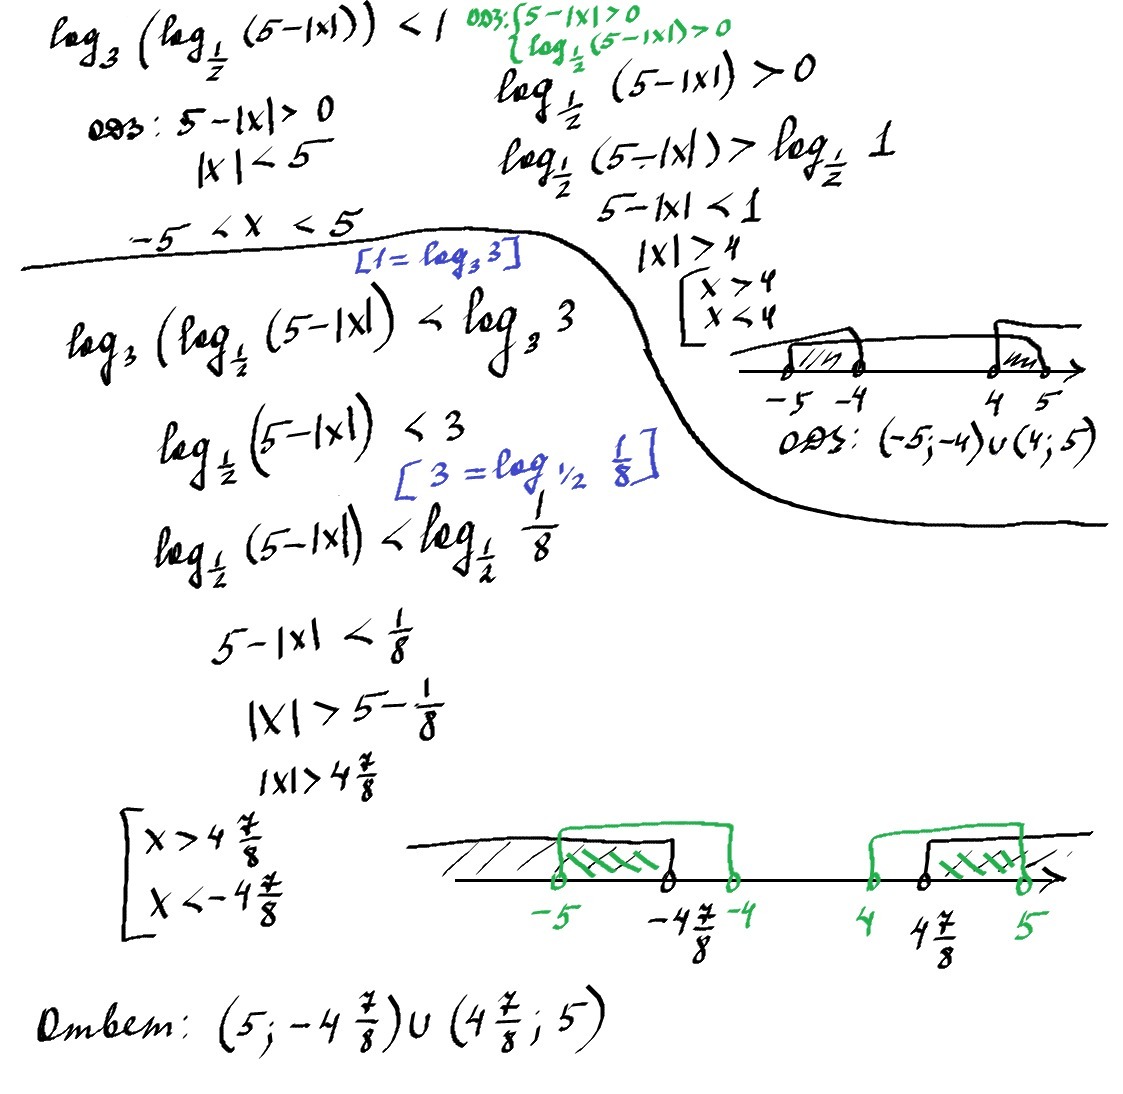 log₃ (log_½ (5-|x|)) < 1
ОДЗ: { 5-|x| > 0
{ log_½ (5-|x|) > 0
ОДЗ: 5-|x| > 0
|x| < 5
-5 < x < 5
log_½ (5-|x|) > 0
log_½ (5-|x|) > log_½ 1
5-|x| < 1
|x| > 4
[ x > 4
x < 4
-5 -4 4 5
ОДЗ: (-5; -4) ∪ (4; 5)
[1 = log₃ 3]
log₃ (log_½ (5-|x|) < log₃ 3
log_½ (5-|x|) < 3
[3 = log_1/2 1/8]
log_½ (5-|x|) < log_½ 1/8
5-|x| < 1/8
|x| > 5 - 1/8
|x| > 4 7/8
[ x > 4 7/8
x < -4 7/8
-5 -4 7/8 -4 4 4 7/8 5
Ответ: (5; -4 7/8) ∪ (4 7/8; 5)